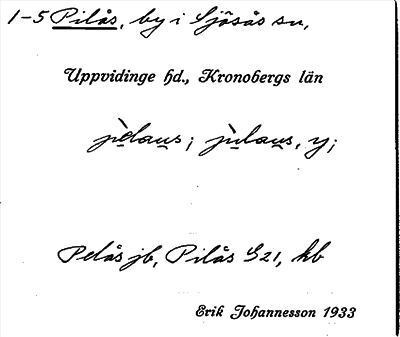 1-5 Pilås, by i Sjösås sn,
Uppvidinge hd., Kronobergs län
pè̱lau̱s; pìlau̱s, y;
Pelås jb, Pilås S21, hb
Erik Johannesson 1933